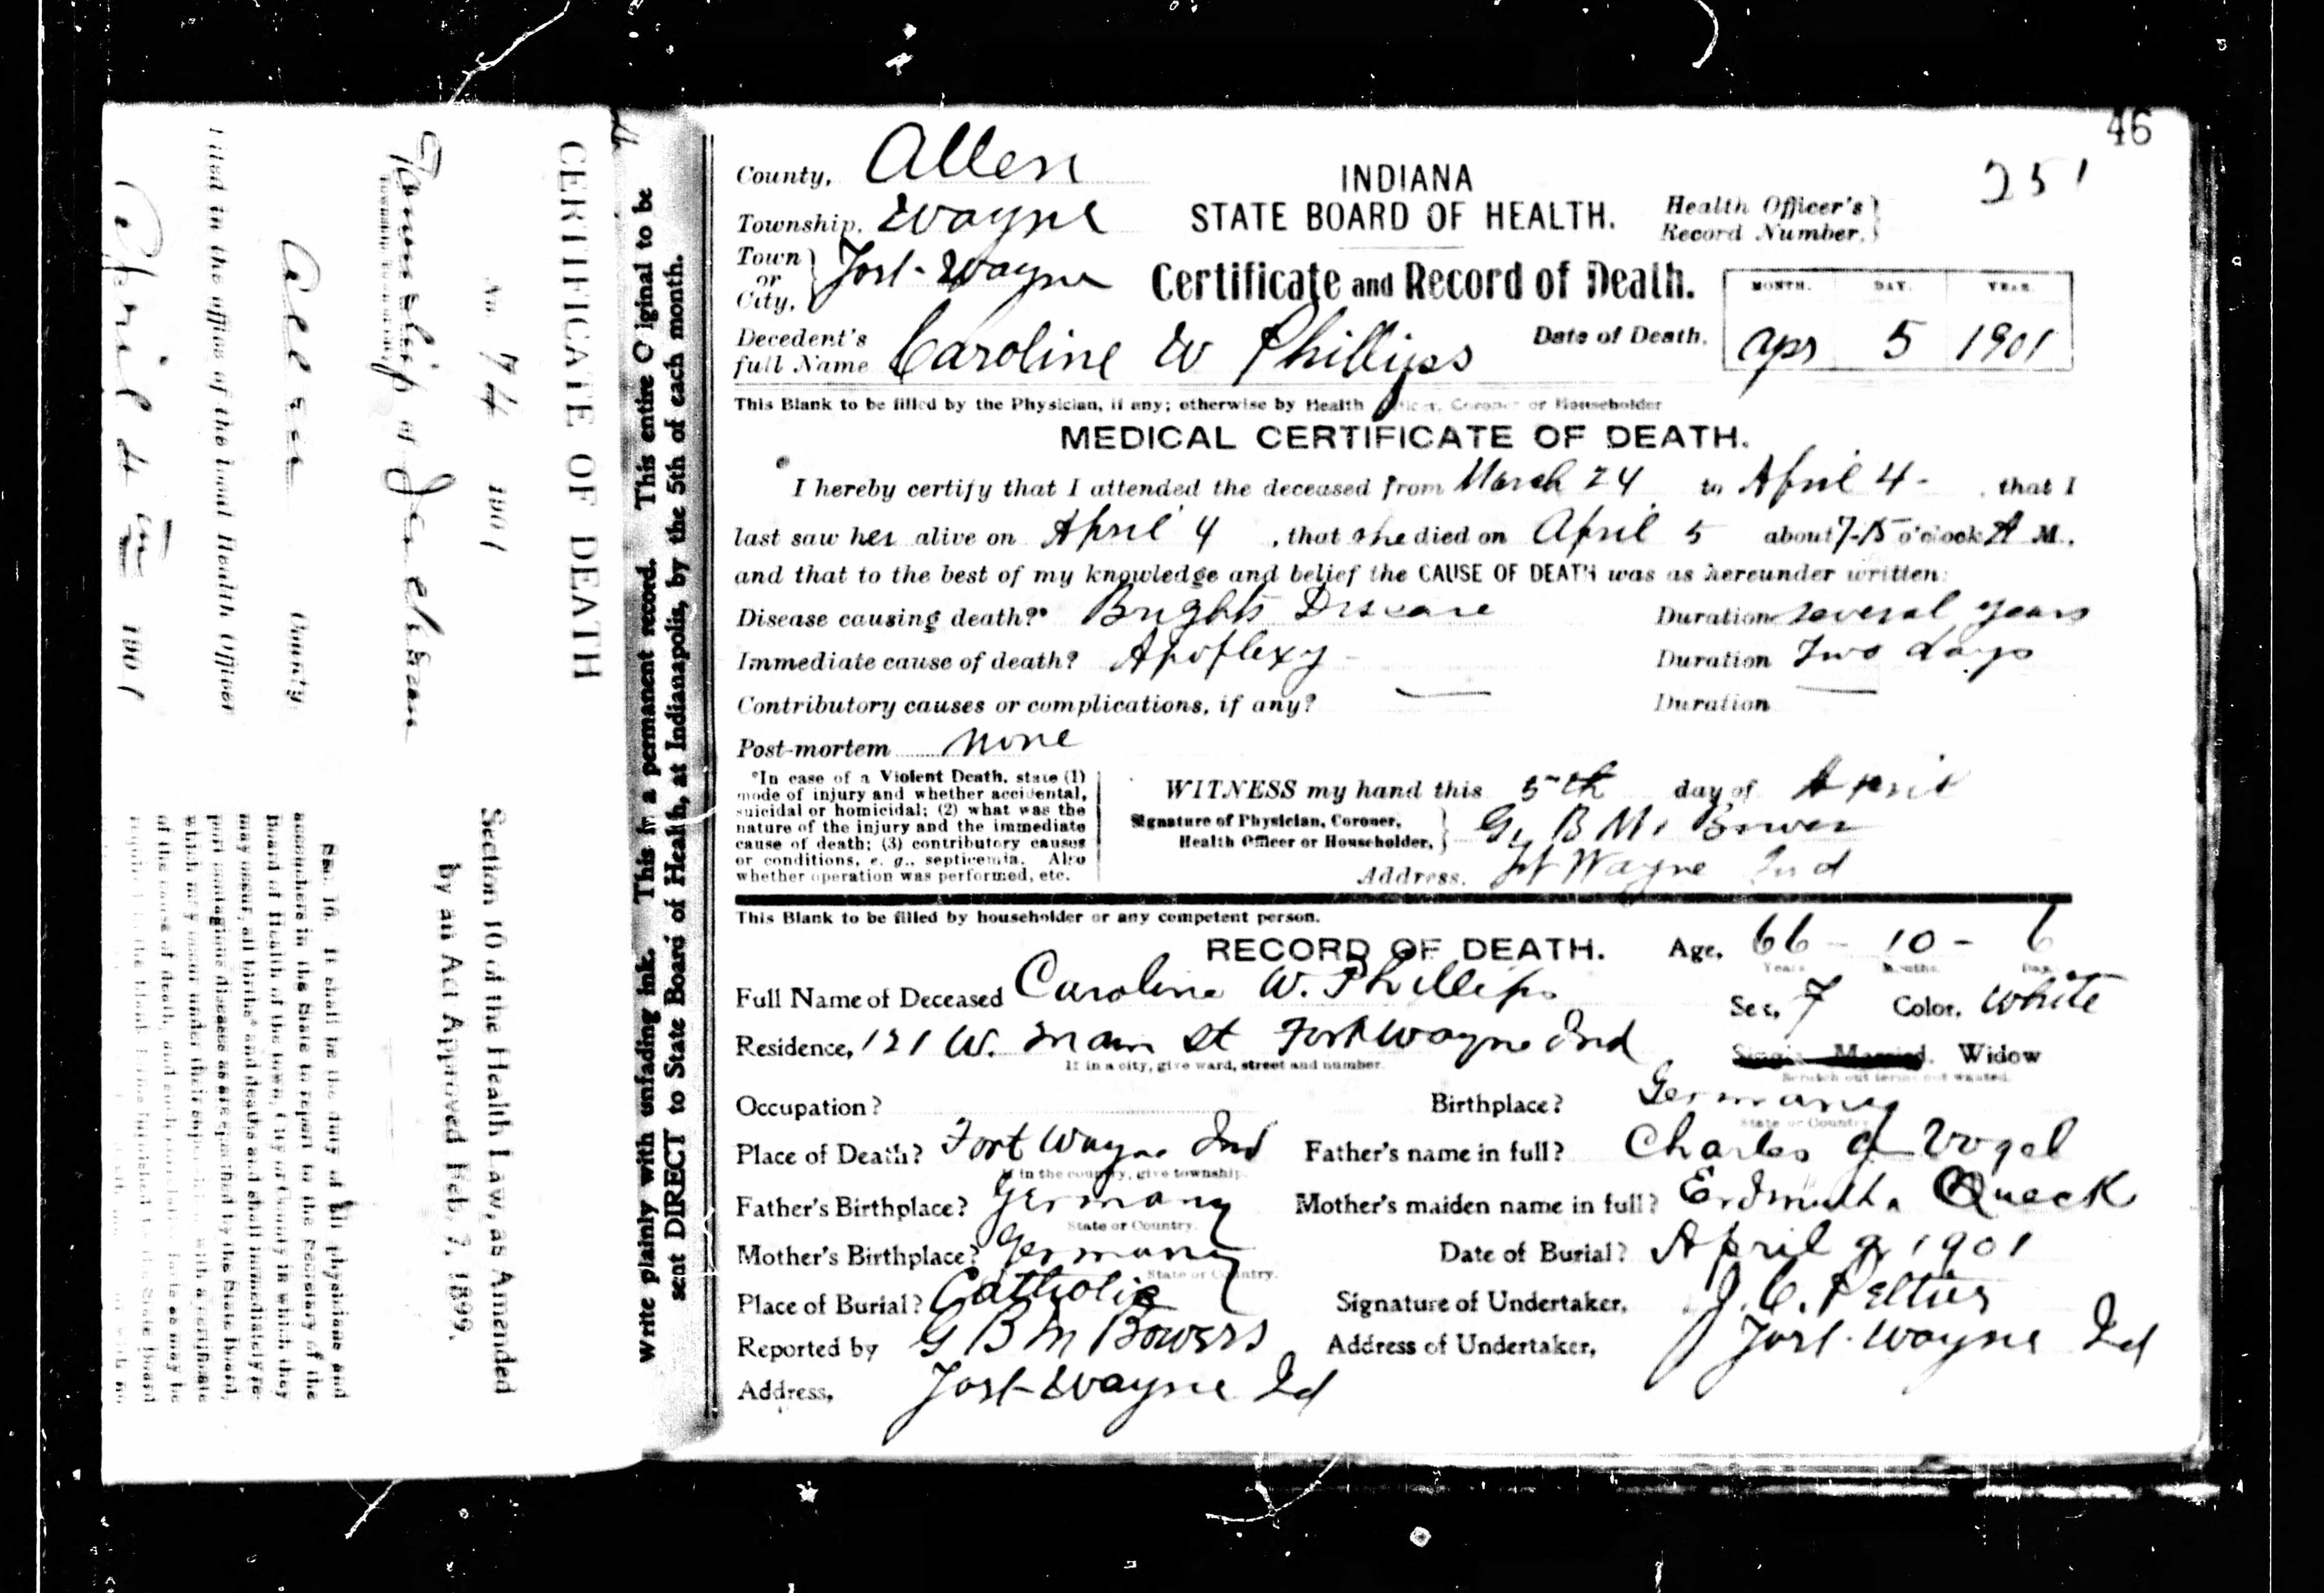 46
County, Allen
INDIANA
251
Township, Wayne
STATE BOARD OF HEALTH.
Health Officer's Record Number,
Town or City, Fort-Wayne
Certificate and Record of Death.
MONTH. DAY. YEAR.
Decedent's full Name Caroline W Phillips
Date of Death, Apr 5 1901
This Blank to be filled by the Physician, if any; otherwise by Health Officer, Coroner or Householder
MEDICAL CERTIFICATE OF DEATH.
I hereby certify that I attended the deceased from March 24 to April 4 - , that I
last saw her alive on April 4 , that she died on April 5 about 7-15 o'clock A M.,
and that to the best of my knowledge and belief the CAUSE OF DEATH was as hereunder written:
Disease causing death?* Brights Disease Duration several years
Immediate cause of death? Apoplexy - Duration Two days
Contributory causes or complications, if any? — Duration —
Post-mortem none
*In case of a Violent Death, state (1)
mode of injury and whether accidental,
suicidal or homicidal; (2) what was the
nature of the injury and the immediate
cause of death; (3) contributory causes
or conditions, e. g., septicemia. Also
whether operation was performed, etc.
WITNESS my hand this 5th day of April
Signature of Physician, Coroner,
Health Officer or Householder, G. B. M. Bower
Address, Ft Wayne Ind
This Blank to be filled by householder or any competent person.
RECORD OF DEATH. Age, 66 - 10 - 6
Years Months Days
Full Name of Deceased Caroline W. Phillips Sex, F Color, White
Residence, 121 W. Main St Fort Wayne Ind Married. Widow
If in a city, give ward, street and number. Scratch out terms not wanted.
Occupation? Birthplace? Germany
State or Country
Place of Death? Fort Wayne Ind Father's name in full? Charles G Vogel
If in the country, give township.
Father's Birthplace? Germany Mother's maiden name in full? Erdmutha Queck
State or Country.
Mother's Birthplace? Germany Date of Burial? April 9 1901
State or Country.
Place of Burial? Catholic Signature of Undertaker, J. C. Peltier
Reported by G B M Bowers Address of Undertaker, Fort-Wayne Id
Address, Fort-Wayne Id
Write plainly with unfading ink. This is a permanent record. This entire Original to be
sent DIRECT to State Board of Health, at Indianapolis, by the 5th of each month.
CERTIFICATE OF DEATH
No. 74 1901
Township of Jackson
Allen County
Filed in the office of the Local Health Officer
April 4 1901
Section 10 of the Health Law, as Amended
by an Act Approved Feb. 7, 1899.
Sec. 10. It shall be the duty of all physicians and
accouchers in the State to report to the Secretary of the
Board of Health of the town, city or County in which they
may occur, all births and deaths and shall immediately re-
port contagious diseases as are specified by the State Board,